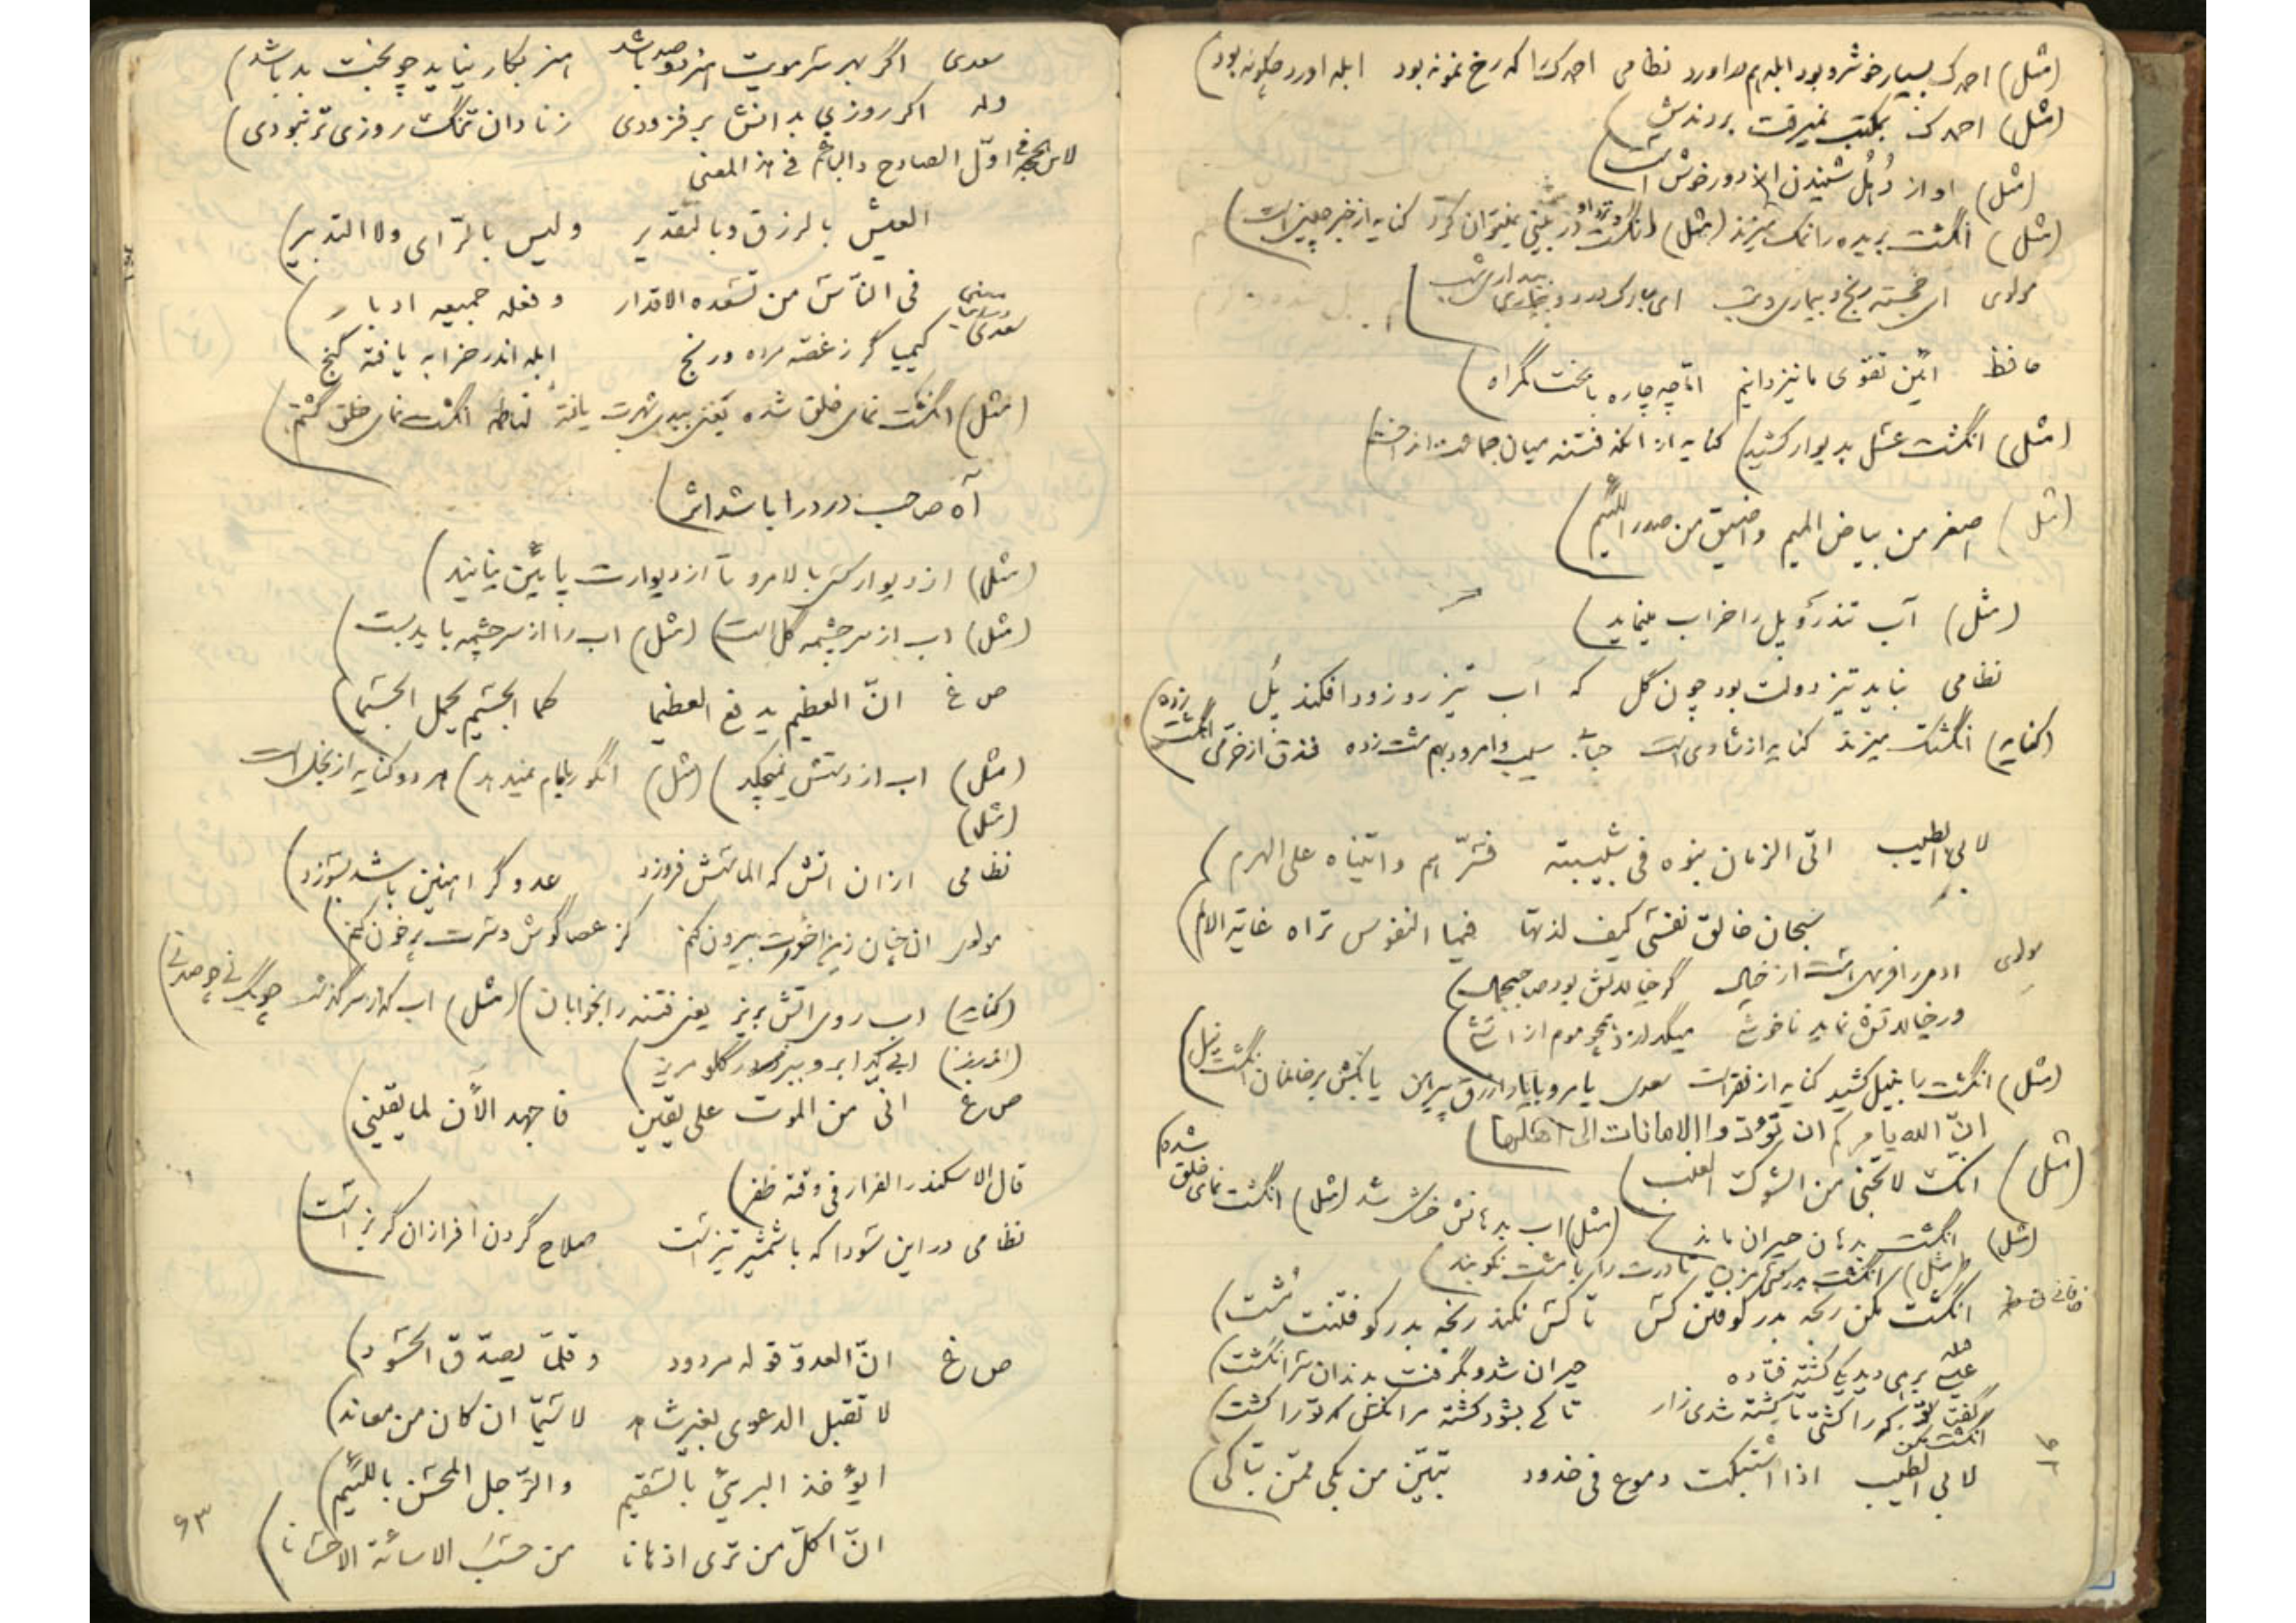 (مثل) احمدک بسیار خوشرو بود ابله هم دراورد نظامی احمدک را که رخ نمونه بود ابله اورد چگونه بود)
(مثل) احمدک بمکتب نمیرفت بردندش)
(مثل) اواز دُهُل شنیدن از دور خوش است)
(مثل) انگشت بریده را نمک میزند (مثل) انگشت در بینی نمیتوان کرد کنایه از خبر چینی است)
مولوی ای خجسته رنج و بیماری و تب ای مبارک درد و بیداری شب
حافظ ائین تقوی ما نیز دانیم امّا چه چاره با بخت گمراه)
(مثل) انگشت عسل بدیوار کشید) کنایه از انکه فتنه میان جماعت انداخت
(مثل) اصغر من بیاض المیم واضیق من صدر اللئیم)
(مثل) آب تند رو پل را خراب مینماید)
نظامی نباید تیز دولت بود چون گل که اب تیز رو زود افکند پُل
(کنایه) انگشتک میزند کنایه از شادی است سیب و امرود بهم مشت زده فندق از خرمی انگشت زده)
لابی الطیب اتی الزمان بنوه فی شبیبته فسّرهم واتیناه علی الهرم)
سبحان خالق نفسی کیف لذتها فیما النفوس تراه غایة الالم)
مولوی ادمی را فربهی است از خیال گر خیالاتش بود صاحب جمال)
ور خیالاتش نماید ناخوشی میگدازد همچو موم از اتشی)
(مثل) انگشت با نیل کشید کنایه از فقر است سعدی یا مرو با یار ازرق پیرهن یا بکش بر خانمان انگشت نیل)
انّ الله یامرکم ان تؤدّوا الامانات الی اهلها
(مثل) انک لاتجنی من الشوک العنب)
(مثل) انگشت بدهان حیران ماند (مثل) اب بدهانش خشک شد (مثل) انگشت نمای خلق شدم
(مثل) انگشت بدر کسی مزن تا درت را با مشت نکوبند)
انگشت مکن رنجه بدر کوفتن کس تا کس نکند رنجه بدر کوفتنت مُشت)
عیسی برهی دید یکی کشته فتاده حیران شد و بگرفت بدندان سر انگشت)
گفتا که کرا کشتی تا کشته شدی زار تا کی بشود کشته هر انکس که ترا کشت)
لابی الطیب اذا اشتبکت دموع فی خدود تبیّن من بکی ممّن تباکی)
۶۲
سعدی اگر بهر سر مویت هنر دو صد باشد هنر بکار نیاید چو بخت بد باشد)
وله اکر روزی بدانش بر فزودی زنادان تنگ روزی تر نبودی)
اوّل الصادح والباغم فی هذا المعنی
العیش بالرزق وبالتقدیر ولیس بالرّای ولا التدبیر)
فی النّاس من تسعده الاقدار وفعله جمیعه ادبار)
سعدی کیمیاگر ز غصّه مرده و رنج ابله اندر خرابه یافته گنج
(مثل) انگشت نمای خلق شده یعنی ببدی شهرت یافته انگشت نمای خلق گشتم)
آه صاحب درد را باشد اثر)
(مثل) از دیوار کس بالا مرو تا از دیوارت پایین نیایند)
(مثل) اب از سر چشمه گل است) (مثل) اب را از سر چشمه باید بست
ص غ انّ العظیم یدفع العظیما کما الجسیم یحمل الجسیما)
(مثل) اب از دستش نمیچکد) (مثل) هر دو کنایه از بخل است
(مثل)
نظامی ازان اتش که الماسش فروزد عدو گر اهنین باشد بسوزد)
مولوی انچنان زین اخورت بیرون کنم کز عصا گوش و سرت پر خون کنم)
(کنایه) اب روی اتش بریز یعنی فتنه را بخوابان) (مثل) اب که از سر گذشت چه یک نی چه صد نی)
ص غ انی من الموت علی یقین فاجهد الآن لما یقینی)
قال الاسکندر الفرار فی وقته ظفر)
نظامی در این سودا که با شمشیر تیز است صلاح گردن افرازان گریز است
ص غ انّ العدوّ قوله مردود وقلّما یصدّق الحسود)
لا تقبل الدعوی بغیر شاهد لا سیّما ان کان من معاند)
ایؤخذ البرئ بالسّقیم والرّجل المحسن باللئیم)
من حسب الاسائة الاحسانا)
۶۳